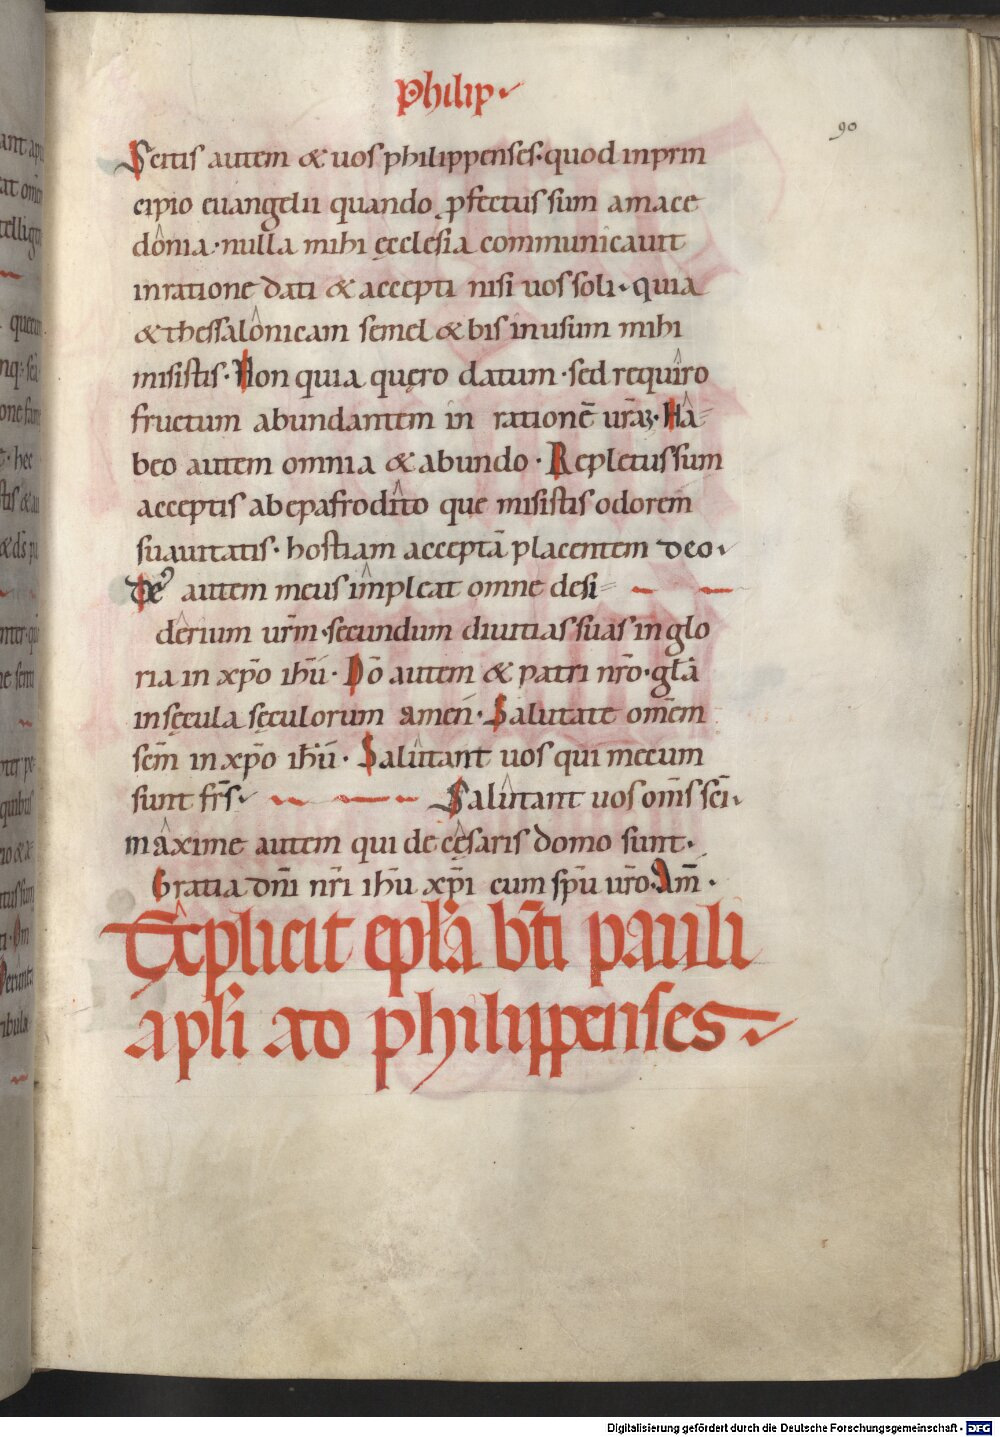 philip·
90
Scitis autem & uos philippenses· quod in prin
cipio euangelii quando ꝓfectus sum a mace
donia· nulla mihi ęcclesia communicauit
in ratione dati & accepti nisi uos soli· quia
& thessalonicam semel & bis in usum mihi
misistis· Non quia quęro datum· sed requiro
fructum abundantem in rationē ur̄aꝫ· Ha⸗
beo autem omnia & abundo· Repletus sum
acceptis ab epafrodito que misistis odorem
suauitatis· hostiam acceptā placentem deo·
autem meus impleat omne desi⸗
derium ur̄m· secundum diuitias suas in glo
ria in xp̄o ih̄ū· Dō autem & patri nr̄o· gl̄a
in sęcula sęculorum amen· Salutate om̄em
sc̄m in xp̄o ih̄ū· Salutant uos qui mecum
sunt fr̄s· Salutant uos om̄s sc̄i·
maxime autem qui de cęsaris domo sunt·
Gratia dn̄i nr̄i ih̄u xp̄i cum sp̄u ur̄o· Am̄·
Explicit epl̄a b̄ti pauli
apl̄i ad philippenses·
Digitalisierung gefördert durch die Deutsche Forschungsgemeinschaft · DFG